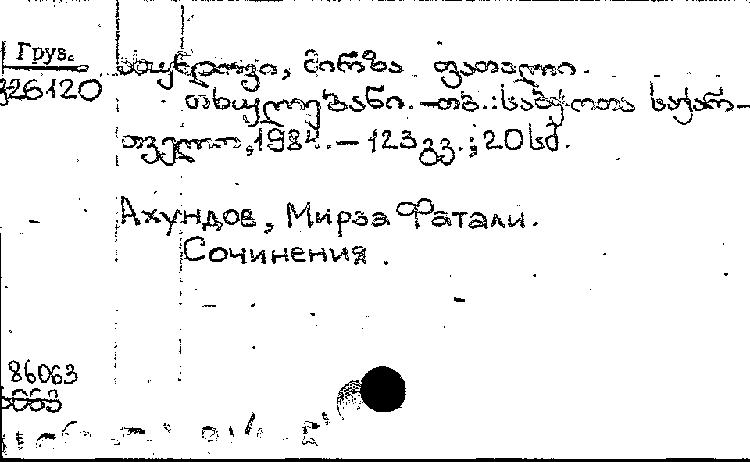 Груз.
ახუნდოვი, მირზა ფათალი.
326120
თხზულებანი. – თბ.: საბჭოთა საქარ-
თველო, 1984. – 123 გვ.; 20 სმ.
Ахундов, Мирза Фатали.
Сочинения.
86063